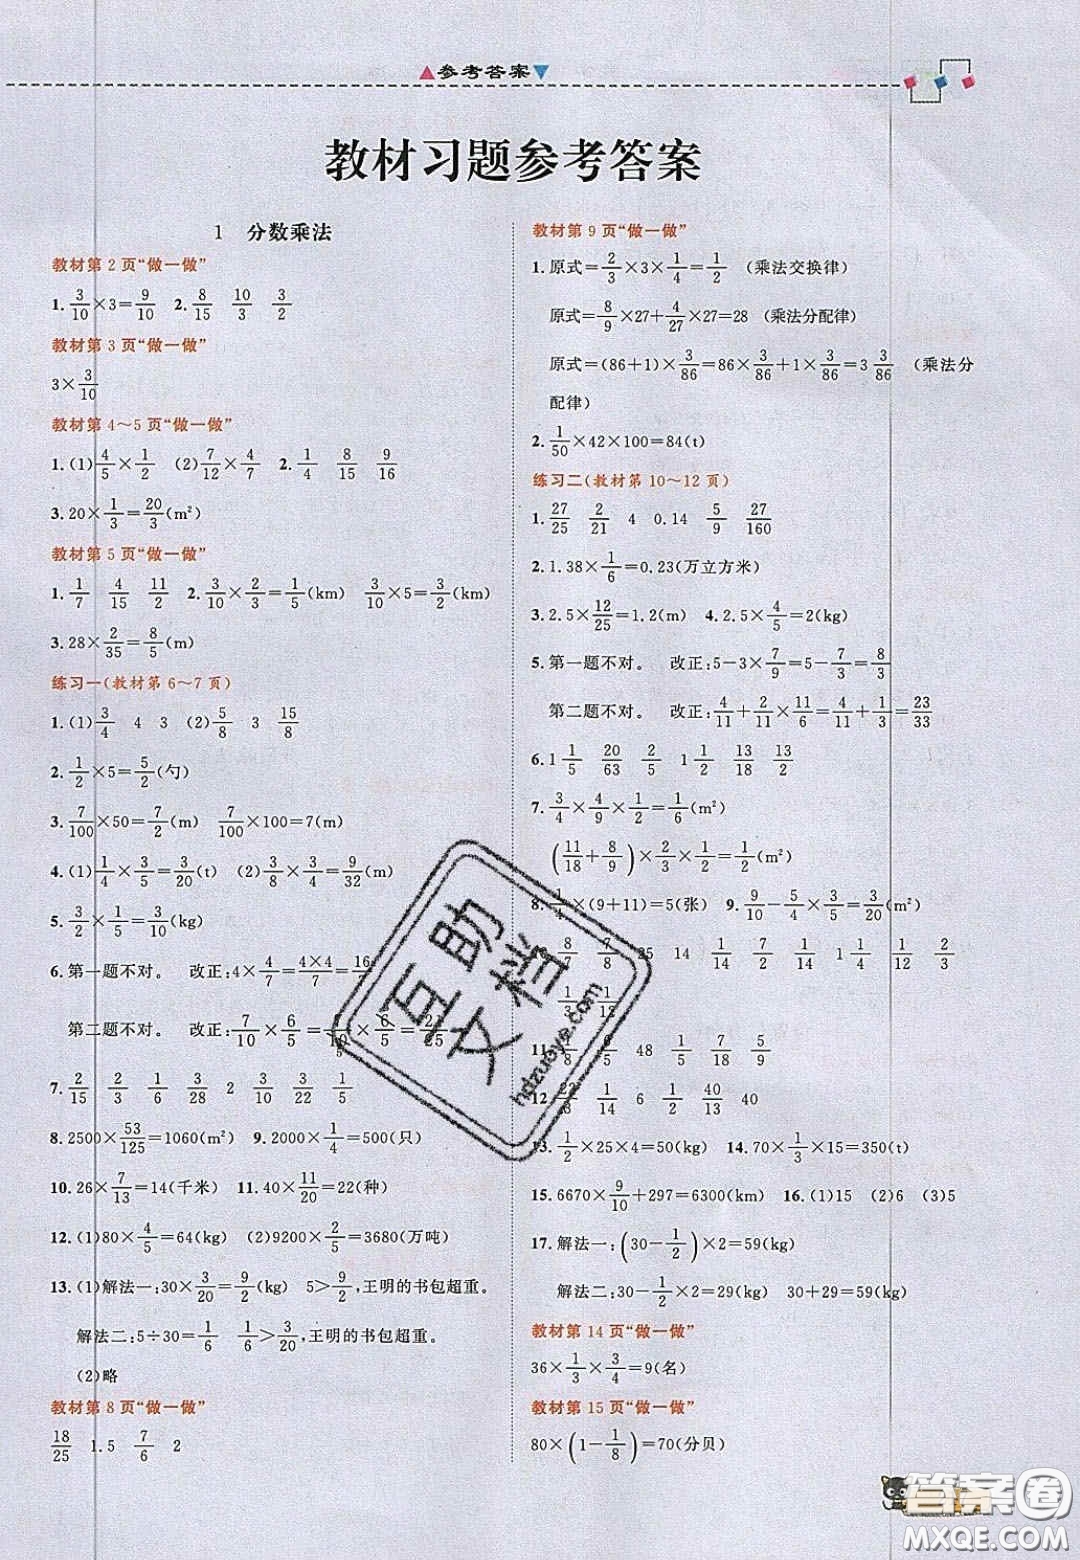 参考答案
教材习题参考答案
1 分数乘法
教材第2页“做一做”
1. 3/10×3=9/10 2. 8/15 10/3 3/2
教材第3页“做一做”
3×3/10
教材第4～5页“做一做”
1.(1)4/5×1/2 (2)7/12×4/7 2. 1/4 8/15 9/16
3.20×1/3=20/3(m²)
教材第5页“做一做”
1. 1/7 4/15 11/2 2. 3/10×2/3=1/5(km) 3/10×5=3/2(km)
3.28×2/35=8/5(m)
练习一(教材第6～7页)
1.(1)3/4 4 3 (2)5/8 3 15/8
2. 1/2×5=5/2(勺)
3. 7/100×50=7/2(m) 7/100×100=7(m)
4.(1)1/4×3/5=3/20(t) (2)3/8×3/4=9/32(m)
5. 3/2×1/5=3/10(kg)
6.第一题不对。 改正:4×4/7=4×4/7=16/
第二题不对。 改正:7/10×6/5= ×6/5=21/25
7. 2/15 2/3 1/6 3/8 2 3/10 3/32 1/5
8.2500×53/125=1060(m²) 9.2000×1/4=500(只)
10.26×7/13=14(千米) 11.40×11/20=22(种)
12.(1)80×4/5=64(kg) (2)9200×2/5=3680(万吨)
13.(1)解法一:30×3/20=9/2(kg) 5>9/2,王明的书包超重。
解法二:5÷30=1/6 1/6>3/20,王明的书包超重。
(2)略
教材第8页“做一做”
18/25 1.5 7/6 2
教材第9页“做一做”
1.原式=2/3×3×1/4=1/2 (乘法交换律)
原式=8/9×27+4/27×27=28 (乘法分配律)
原式=(86+1)×3/86=86×3/86+1×3/86=3 3/86 (乘法分
配律)
2. 1/50×42×100=84(t)
练习二(教材第10～12页)
1. 27/25 2/21 4 0.14 5/9 27/160
2.1.38×1/6=0.23(万立方米)
3.2.5×12/25=1.2(m) 4.2.5×4/5=2(kg)
5.第一题不对。 改正:5-3×7/9=5-7/3=8/3
第二题不对。 改正:4/11+2/11×11/6=4/11+1/3=23/33
6.1 1/5 20/63 2/5 1 1/2 13/2 13/2
7. 3/4×4/9×1/2=1/6(m²)
(11/18+8/9)×2/3×1/2=1/2(m²)
8. 1/4×(9+11)=5(张) 9. 9/10-5/4×3/5=3/20(m²)
8/7 7/8 35 14 1/14 7/2 1/14 1 1/4 1/12 2/3
1/3 1/12
11. /8 6/5 48 1/5 7/18 5/9
12. 22/3 1/14 6 1/12 40/13 40
13. 1/2×25×4=50(kg) 14.70×1/3×15=350(t)
15.6670×9/10+297=6300(km) 16.(1)15 (2)6 (3)5
17.解法一:(30-1/2)×2=59(kg)
解法二:30-1/2×2=29(kg) 30+29=59(kg)
教材第14页“做一做”
36×1/3×3/4=9(名)
教材第15页“做一做”
80×(1-1/8)=70(分贝)
互助文档
hdzuoye.com
答案圈
MXQE.COM